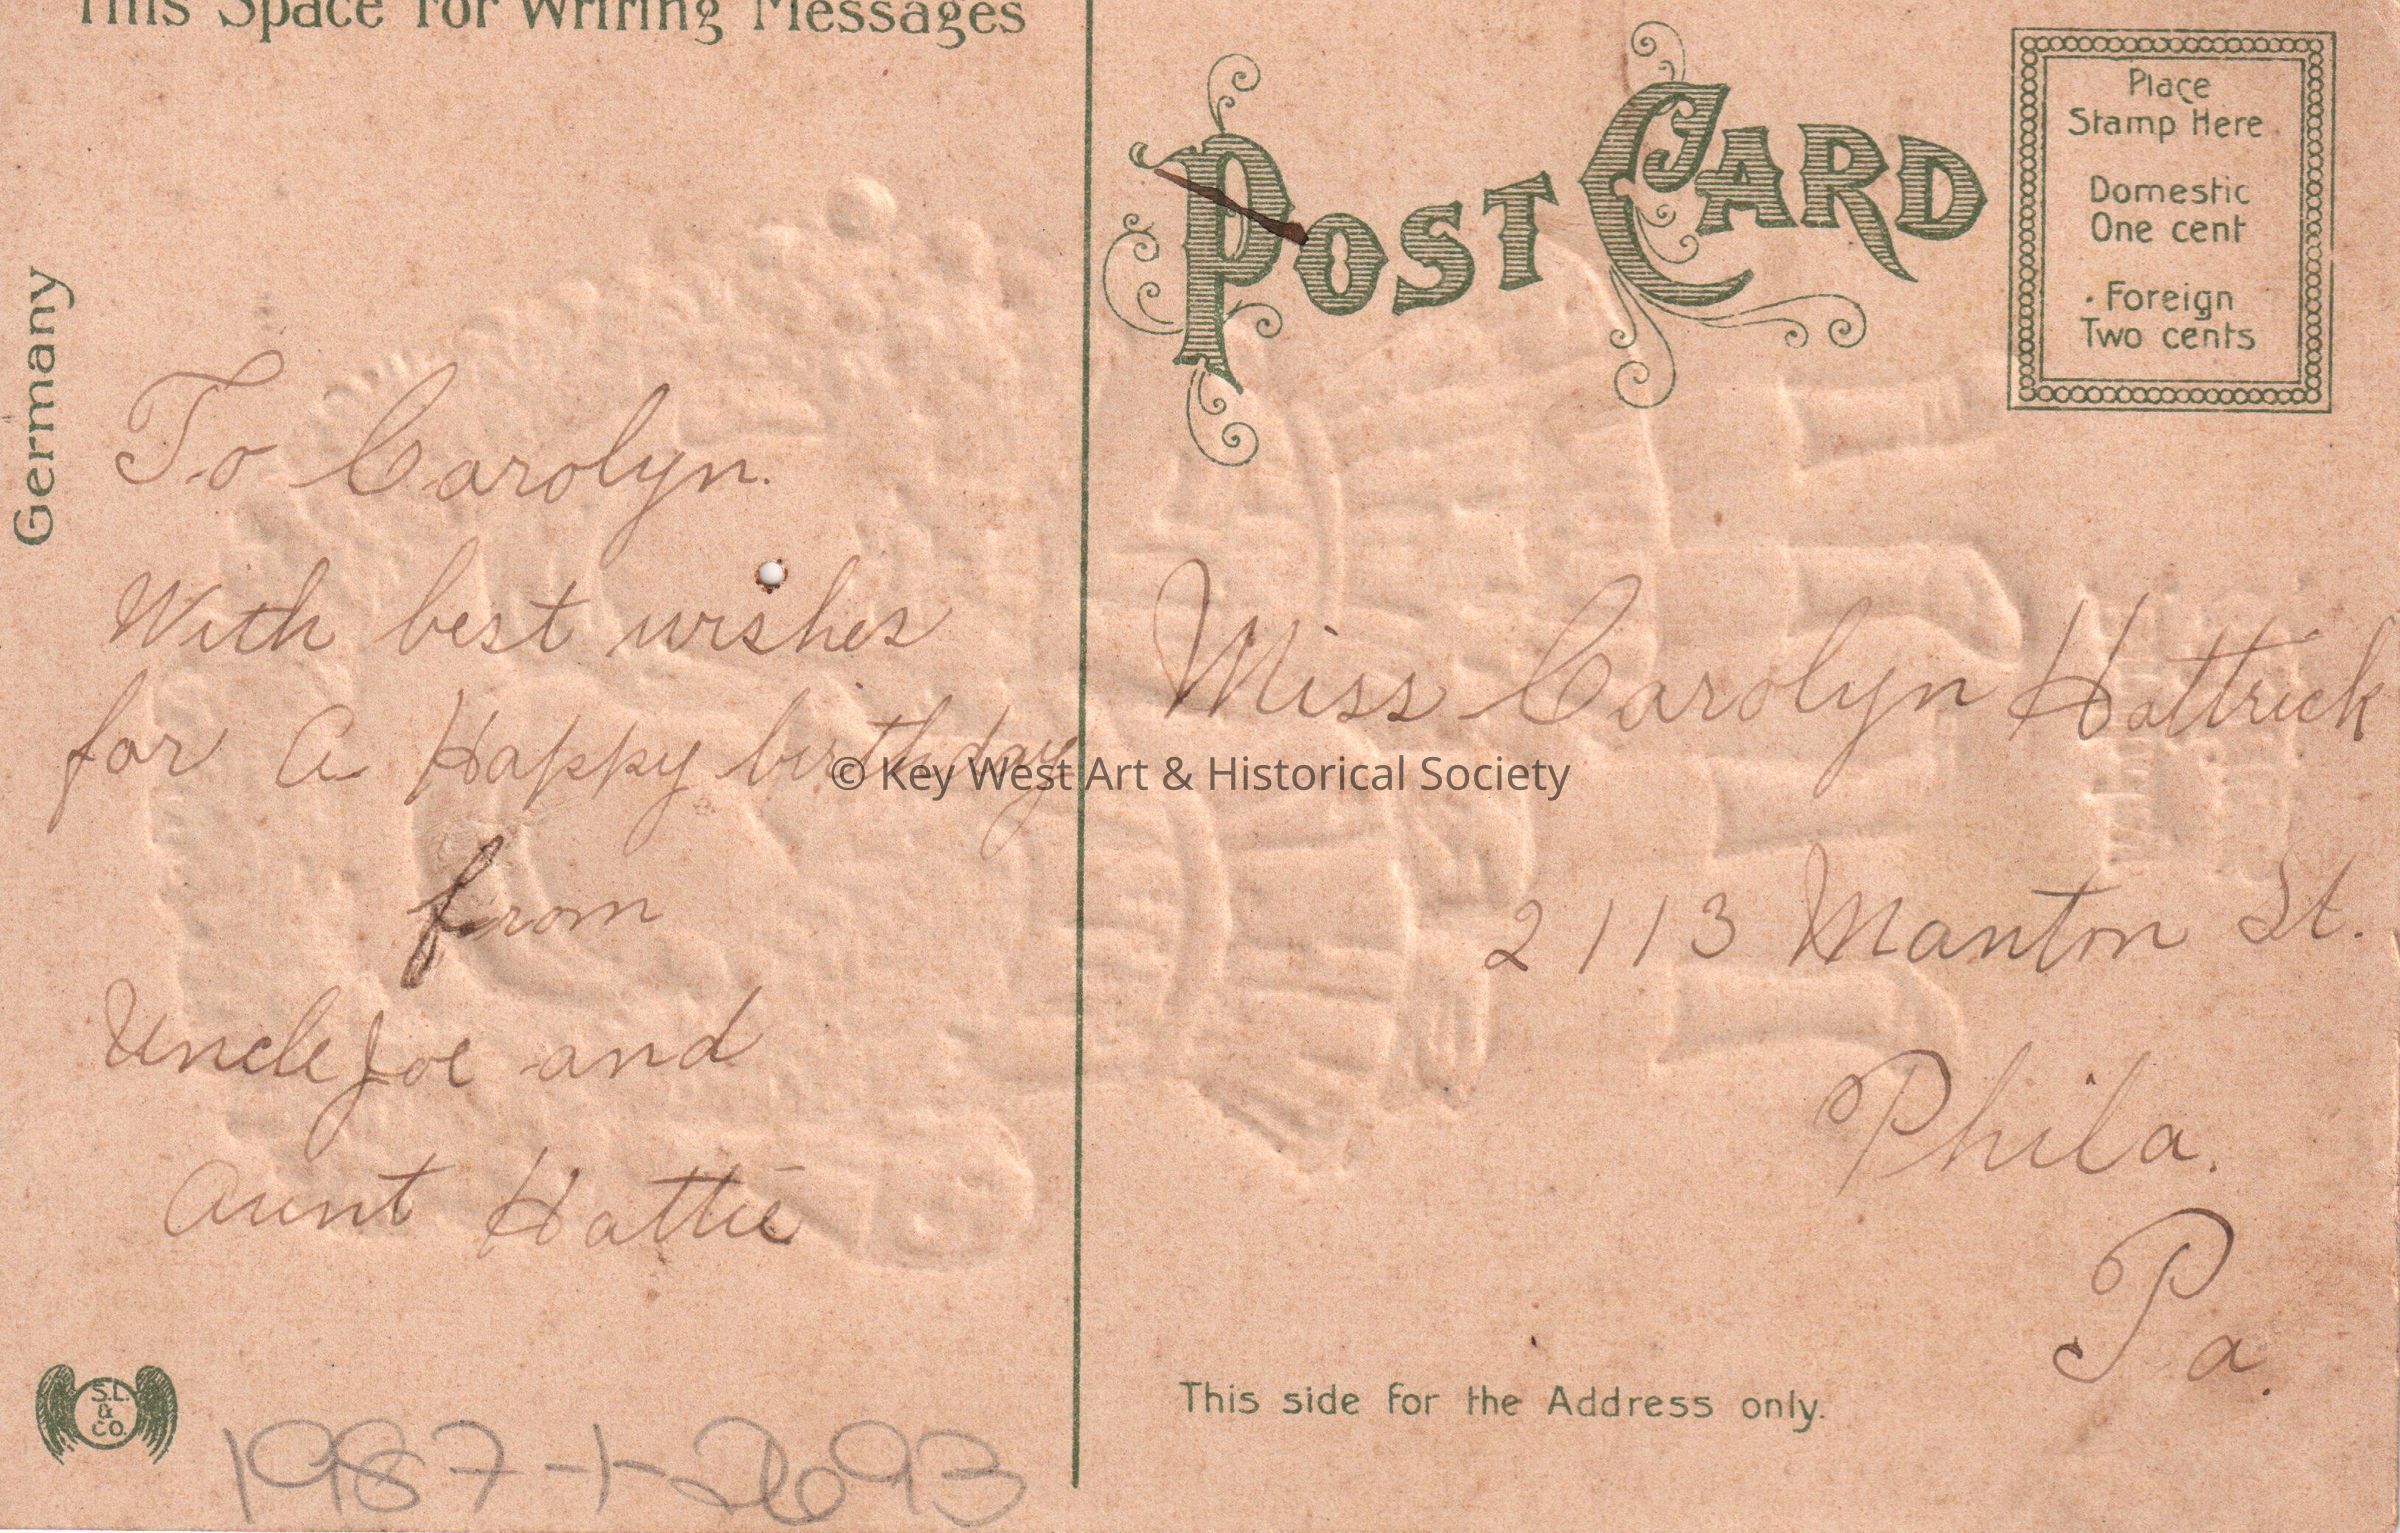 This Space for Writing Messages
Germany
To Carolyn.
With best wishes
for a Happy birthday
from
Uncle Joe and
Aunt Hattie
S.L.
&
CO.
1987-1-2693
POST CARD
Place
Stamp Here
Domestic
One cent
Foreign
Two cents
Miss Carolyn Hattrick
2113 Manton St.
Phila.
Pa.
This side for the Address only.
© Key West Art & Historical Society